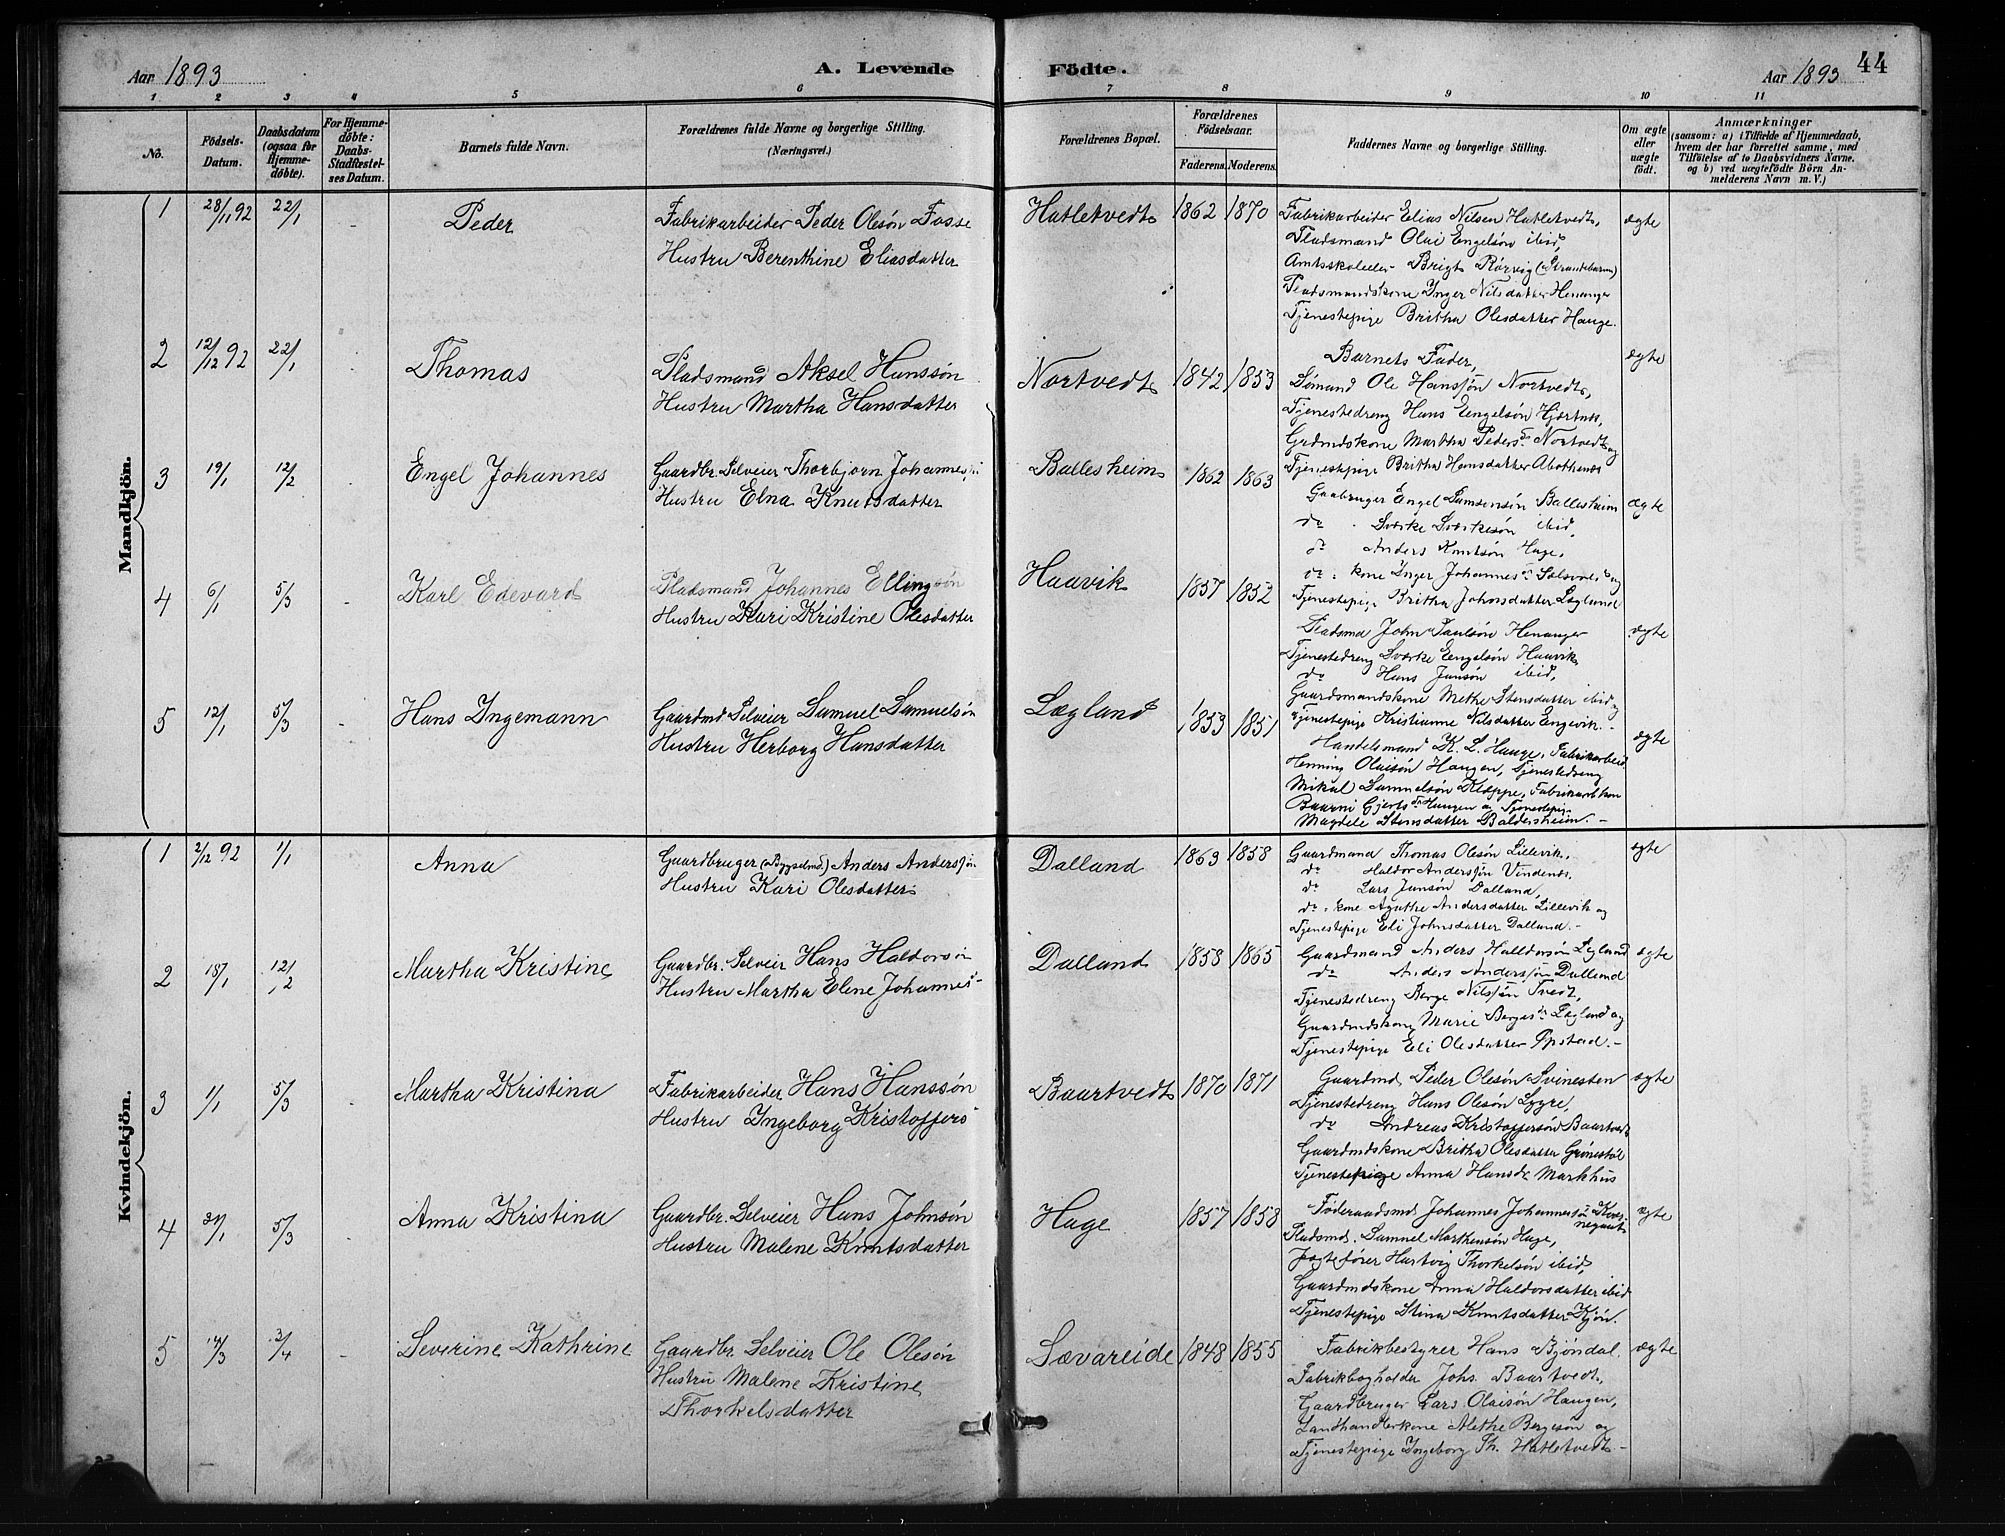 Aar 1893
A. Levende Födte.
Aar 1893
44
1 2 3 4 5 6 7 8 9 10 11
No.
Födsels-Datum.
Daabsdatum (ogsaa for Hjemme-døbte).
For Hjemme-døbte: Daabs-Stadfæstel-ses Datum.
Barnets fulde Navn.
Forældrenes fulde Navne og borgerlige Stilling.
(Næringsvei.)
Forældrenes Bopæl.
Forældrenes Födselsaar.
Faderens. Moderens.
Faddernes Navne og borgerlige Stilling.
Om ægte eller uægte födt.
Anmærkninger
(saasom: a) i Tilfælde af Hjemmedaab,
hvem der har forrettet samme, med
Tilföielse af to Daabsvidners Navne.
og b) ved uægtefödte Börn An-
melderens Navn m. V.)
Mandkjön.
1 28/11 92 22/1 - Peder
Fabrikarbeider Peder Olesön Fosse
Hustru Berenthine Eliasdatter
Hatletvedt 1862 1870
Fabrikarbeider Elias Nilsen Hatletvedt,
Pladsmand Olai Engelsön ibid,
Amtsskolelær Brigt Rörvig (Strandebarm)
Pladsmandskone Inger Nilsdatter Henanger
Tjenestepige Britha Olesdatter Hauge.
ægte
2 12/12 92 22/1 Thomas
Pladsmand Aksel Hanssön
Hustru Martha Hansdatter
Nortvedt 1842 1853
Barnets Fader,
Sömand Ole Hanssön Nortvedt,
Tjenestedreng Hans Engelsön Hjertnes,
Grdmdskone Martha Peders Nortvedt og
Tjenestepige Britha Hansdatter
ægte
3 19/1 12/2 Engel Johannes
Gaardbr. Selveier Thorbjörn Johannes
Hustru Elna Knutsdatter
Ballesheim 1862 1863
Gaabruger Engel Samsonsön Ballesheim
do Sværke Sværkesön ibid,
do Anders Knutsön Hage,
do kone Inger Johannes og
Tjenestepige Britha Johnsdatter Lægland
ægte
4 6/1 5/3 - Karl Edevard
Pladsmand Johannes Ellingsön
Hustru Kari Kristine Olesdatter
Haavik 1857 1852
Pladsmd John Paulsön Henanger
Tjenestedreng Sværke Engelsön Haavik
do Hans Jansön ibid,
Gaardsmandskone Methe Stensdatter ibid og
Tjenestepige Kristianne Nilsdatter Engevik. -
ægte
5 12/1 5/3 - Hans Ingemann
Gaardmd Selveier Samuel Samuelsön
Hustru Herborg Hansdatter
Lægland 1853 1851
Handelsmand K. L. Hauge, Fabrikarbeid
Henning Olaisön Haugen, Tjenestedreng
Mikal Samuelsön Kleppe, Fabrikarb
Gjerts Haugen og Tjenestepige
Magdele Stensdatter Baldersheim. -
ægte
Kvindekjön.
1 2/12 92 1/1 Anna
Gaardbruger (Bygselmd) Anders Anderssön
Hustru Kari Olesdatter
Dalland 1863 1858
Gaardmand Thomas Olesön Lillevik,
do Haldor Anderssön Vindenes,
do Lars Jansön Dalland,
do kone Agathe Andersdatter Lillevik og
Tjenestepige Eli Johnsdatter Dalland. -
ægte
2 18/1 12/2 Martha Kristine
Gaardbr. Selveier Hans Haldorsön
Hustru Martha Elene Johannes
Dalland 1858 1865
Gaardmand Anders Halldorsön Lægland
do Anders Anderssön Dalland
Tjenestedreng Berge Nilssön Tvedt,
Gaardmdskone Marie Berges Lægland og
Tjenestepige Eli Olesdatter Opstad. -
ægte
3 1/1 5/3 Martha Kristina
Fabrikarbeider Hans Hanssön
Hustru Ingeborg Kristoffers
Baartvedt 1870 1871
Gaardmd. Peder Olesön Svinesten
Tjenestedreng Hans Olesön Lygre,
do Andreas Kristoffersön Baartvedt
Gaardmdskone Britha Olesdatter Grönestöl
Tjenestepige Anna Hansd Markhus
ægte
4 31/1 5/3 - Anna Kristina
Gaardbr. Selveier Hans Johnsön
Hustru Malene Knutsdatter
Hage 1857 1858
Föderaadsmd Johannes Johannessön
Pladsmd. Samuel Marthensön Hage,
Jægtefører Hartvig Thorkelsön ibid,
Gaardmdskone Anna Haldorsdatter ibid
Tjenestepige Stina Knutsdatter Kjön.
ægte
5 14/3 3/4 - Severine Kathrine
Gaardbr. Selveier Ole Olesön
Hustru Malene Kristine
Thorkelsdatter
Sævareide 1848 1855
Fabrikbestyrer Hans Bjöndal
Fabrikbogholder Johs. Baartvedt,
Gaardbruger Lars Olaisön Haugen,
Landhandlerkone Alethe Bergesön og
Tjenestepige Ingeborg Th. Hatletvedt -
ægte